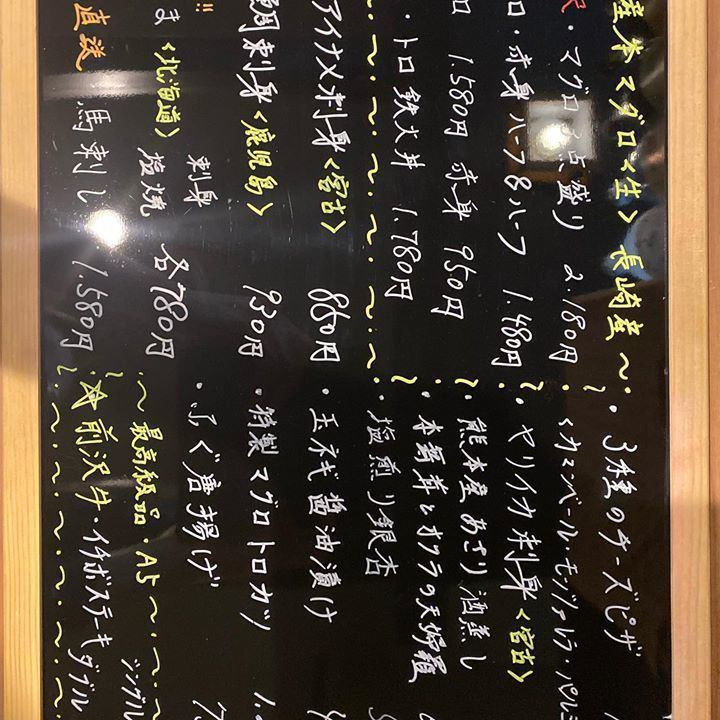 産本マグロ<生> 長崎産
・マグロ 点盛り 2.180円
ロ・赤身 ハーフ&ハーフ 1.480円
ロ 1.580円 赤身 950円
・トロ鉄火丼 1.780円
アイナメ刺身<宮古> 860円
鯛刺身<鹿児島> 930円
!! 刺身
ま<北海道> 塩焼 各780円
直送 馬刺し 1.580円
・3種のチーズピザ
<カマンベール・モッツァレラ・パルミ
・ヤリイカ刺身<宮古>
・熊本産あさり酒蒸し
・本舞茸とオクラの天婦羅
・塩煎り銀杏
・玉ネギ醤油漬け
・特製マグロトロカツ 1.
・ふぐ唐揚げ 7
最高級品・A5 シングル
☆前沢牛・イチボステーキ ダブル